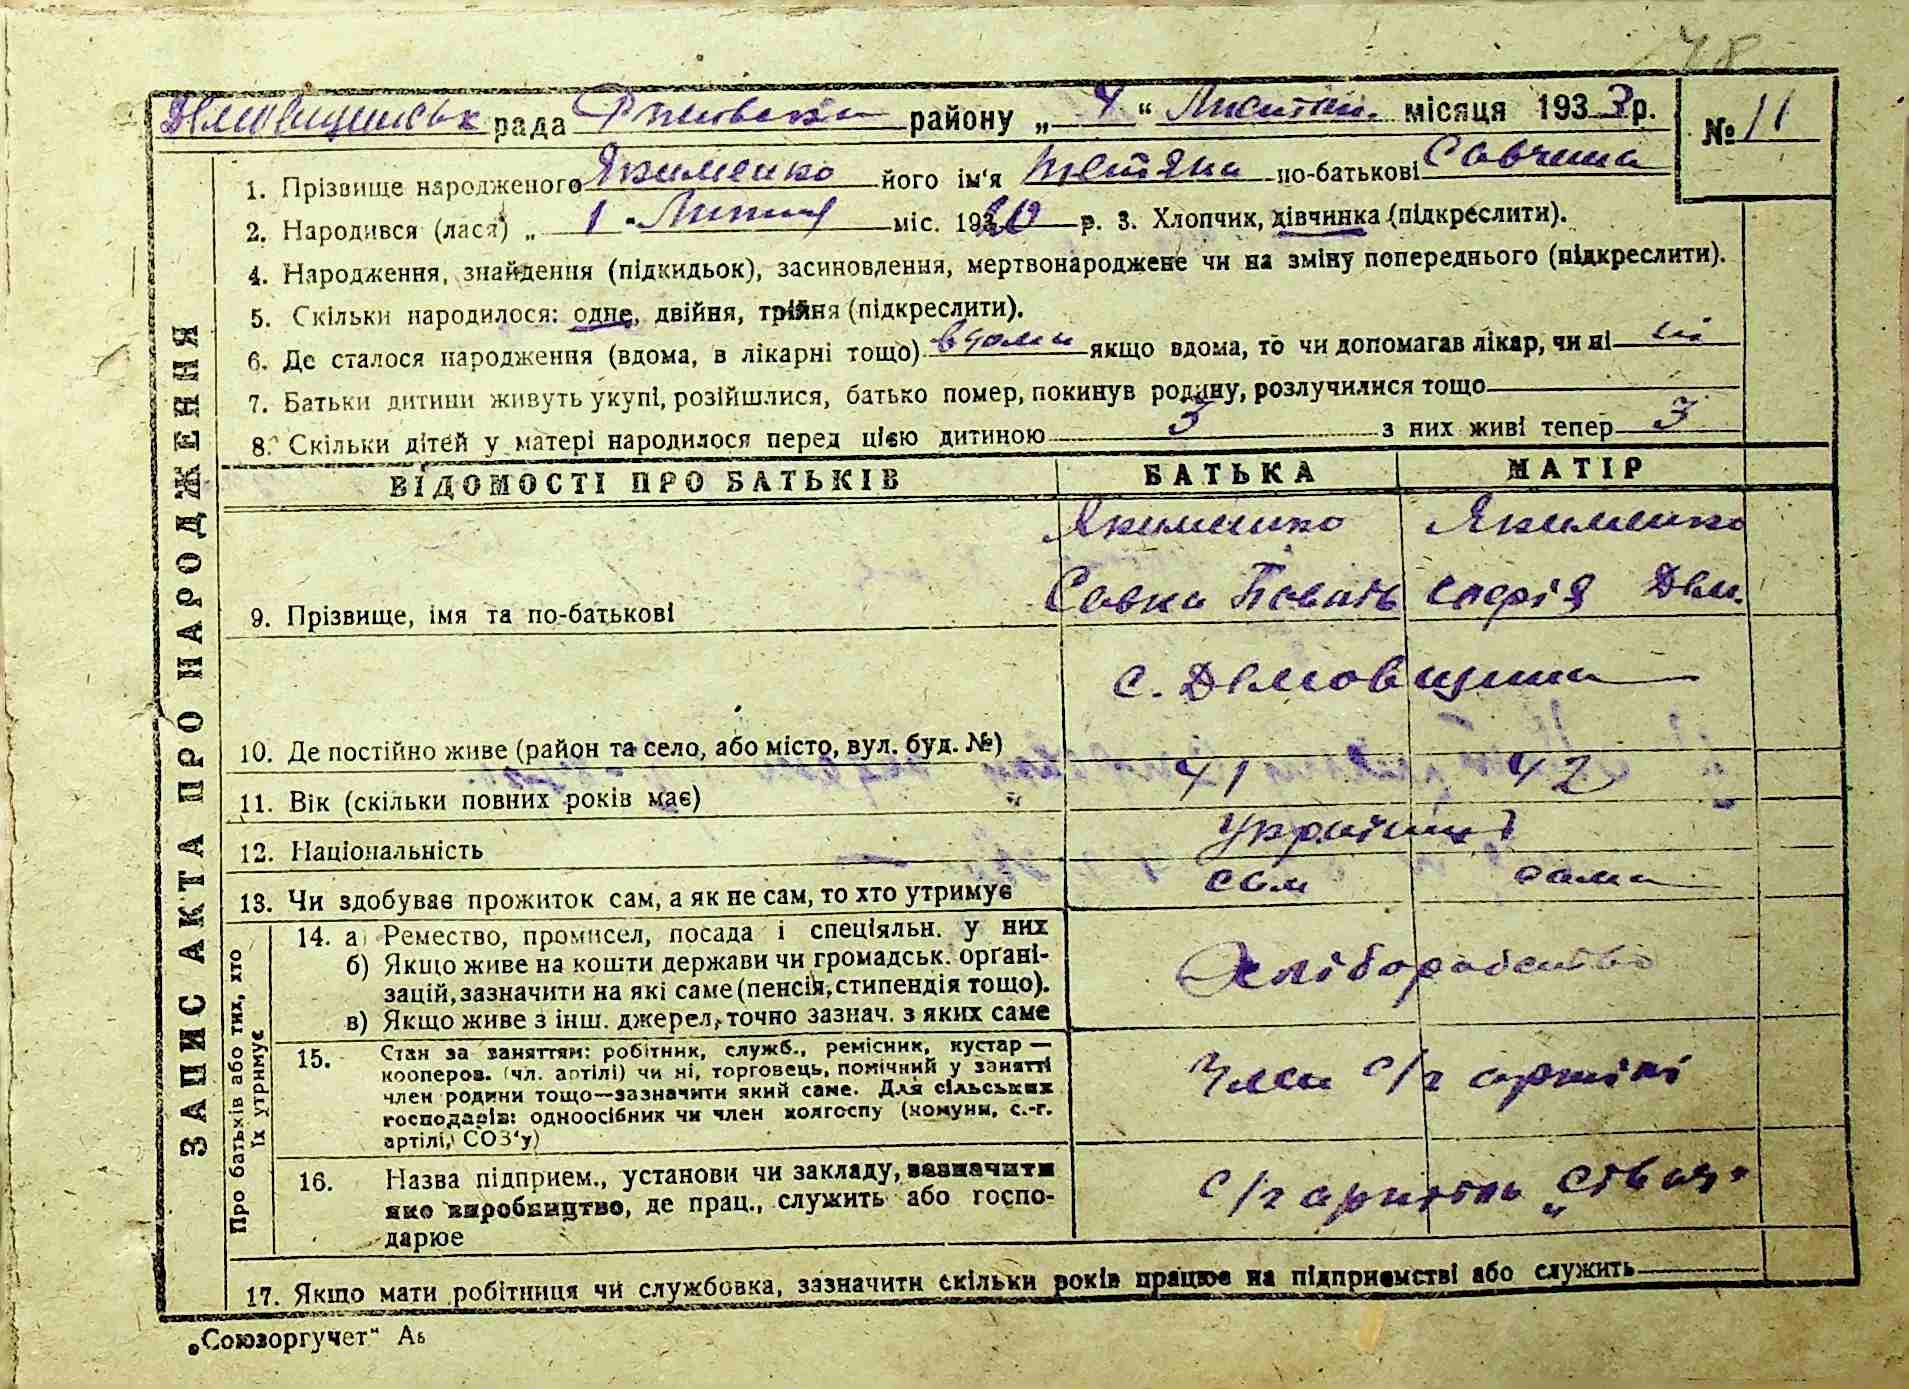 78
рада району „ “ місяця 1933 р. № 11
1. Прізвище народженого Якименко його ім‘я Тетяна по-батькові Савчина
2. Народився (лася) „ 1 " Липня міс. 193 р. 3. Хлопчик, дівчинка (підкреслити).
4. Народження, знайдення (підкидьок), засиновлення, мертвонароджене чи на зміну попереднього (підкреслити).
5. Скільки народилося: одне, двійня, трійня (підкреслити).
6. Де сталося народження (вдома, в лікарні тощо) вдома якщо вдома, то чи допомагав лікар, чи ні ні
7. Батьки дитини живуть укупі, розійшлися, батько помер, покинув родину, розлучилися тощо
8. Скільки дітей у матері народилося перед цією дитиною 3 з них живі тепер 3
ЗАПИС АКТА ПРО НАРОДЖЕННЯ
ВІДОМОСТІ ПРО БАТЬКІВ БАТЬКА МАТІР
Якименко Якименко
9. Прізвище, імя та по-батькові Савка Софія
с. Дємовщина
10. Де постійно живе (район та село, або місто, вул. буд. №)
11. Вік (скільки повних років має) 41 42
12. Національність Українці
13. Чи здобуває прожиток сам, а як не сам, то хто утримує сам сама
Про батьків або тих, хто їх утримує
14. а) Ремество, промисел, посада і спеціяльн. у них
б) Якщо живе на кошти держави чи громадськ. орґані-
зацій, зазначити на які саме (пенсія, стипендія тощо). Хліборобство
в) Якщо живе з інш. джерел, точно зазнач. з яких саме
15. Стан за заняттям: робітник, служб., ремісник, кустар —
кооперов. (чл. артілі) чи ні, торговець, помічний у занятті
член родини тощо—зазначити який саме. Для сільських Член с/г артілі
господарів: одноосібник чи член колгоспу (комуни, с.-г.
артілі, СОЗ‘у)
16. Назва підприєм., установи чи закладу, зазначити
яке виробництво, де прац., служить або госпо- с/г артіль
дарює
17. Якщо мати робітниця чи службовка, зазначити скільки років працює на підприємстві або служить
„Союзоргучет“